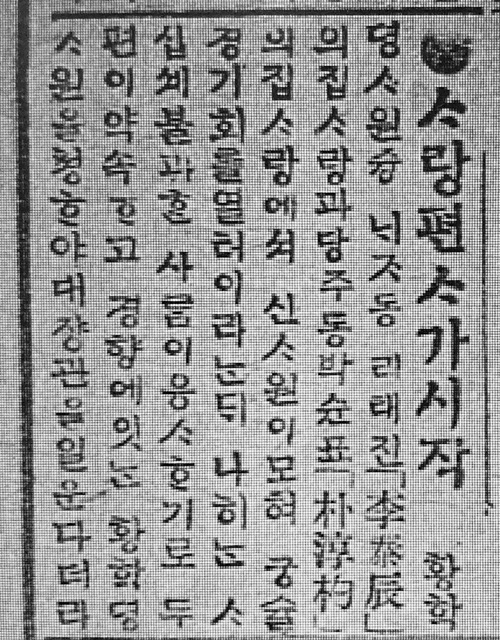 ●ᄉᆞ랑편ᄉᆞ가시작 황학
뎡ᄉᆞ원즁 너ᄌᆞ동 리태진「李泰辰」
의집ᄉᆞ랑과당주동박슌표「朴淳杓」
의집ᄉᆞ랑에셔 신ᄉᆞ원이모혀 궁슐
경기회를열터이라ᄂᆞᆫᄃᆡ 나히ᄂᆞᆫ ᄉᆞ
십셰불과ᄒᆞᆫ 사ᄅᆞᆷ이응ᄉᆞᄒᆞ기로 두
편이약속ᄒᆞ고 경향에잇ᄂᆞᆫ 황학뎡
ᄉᆞ원을쳥ᄒᆞ야대쟝관을일운다더라